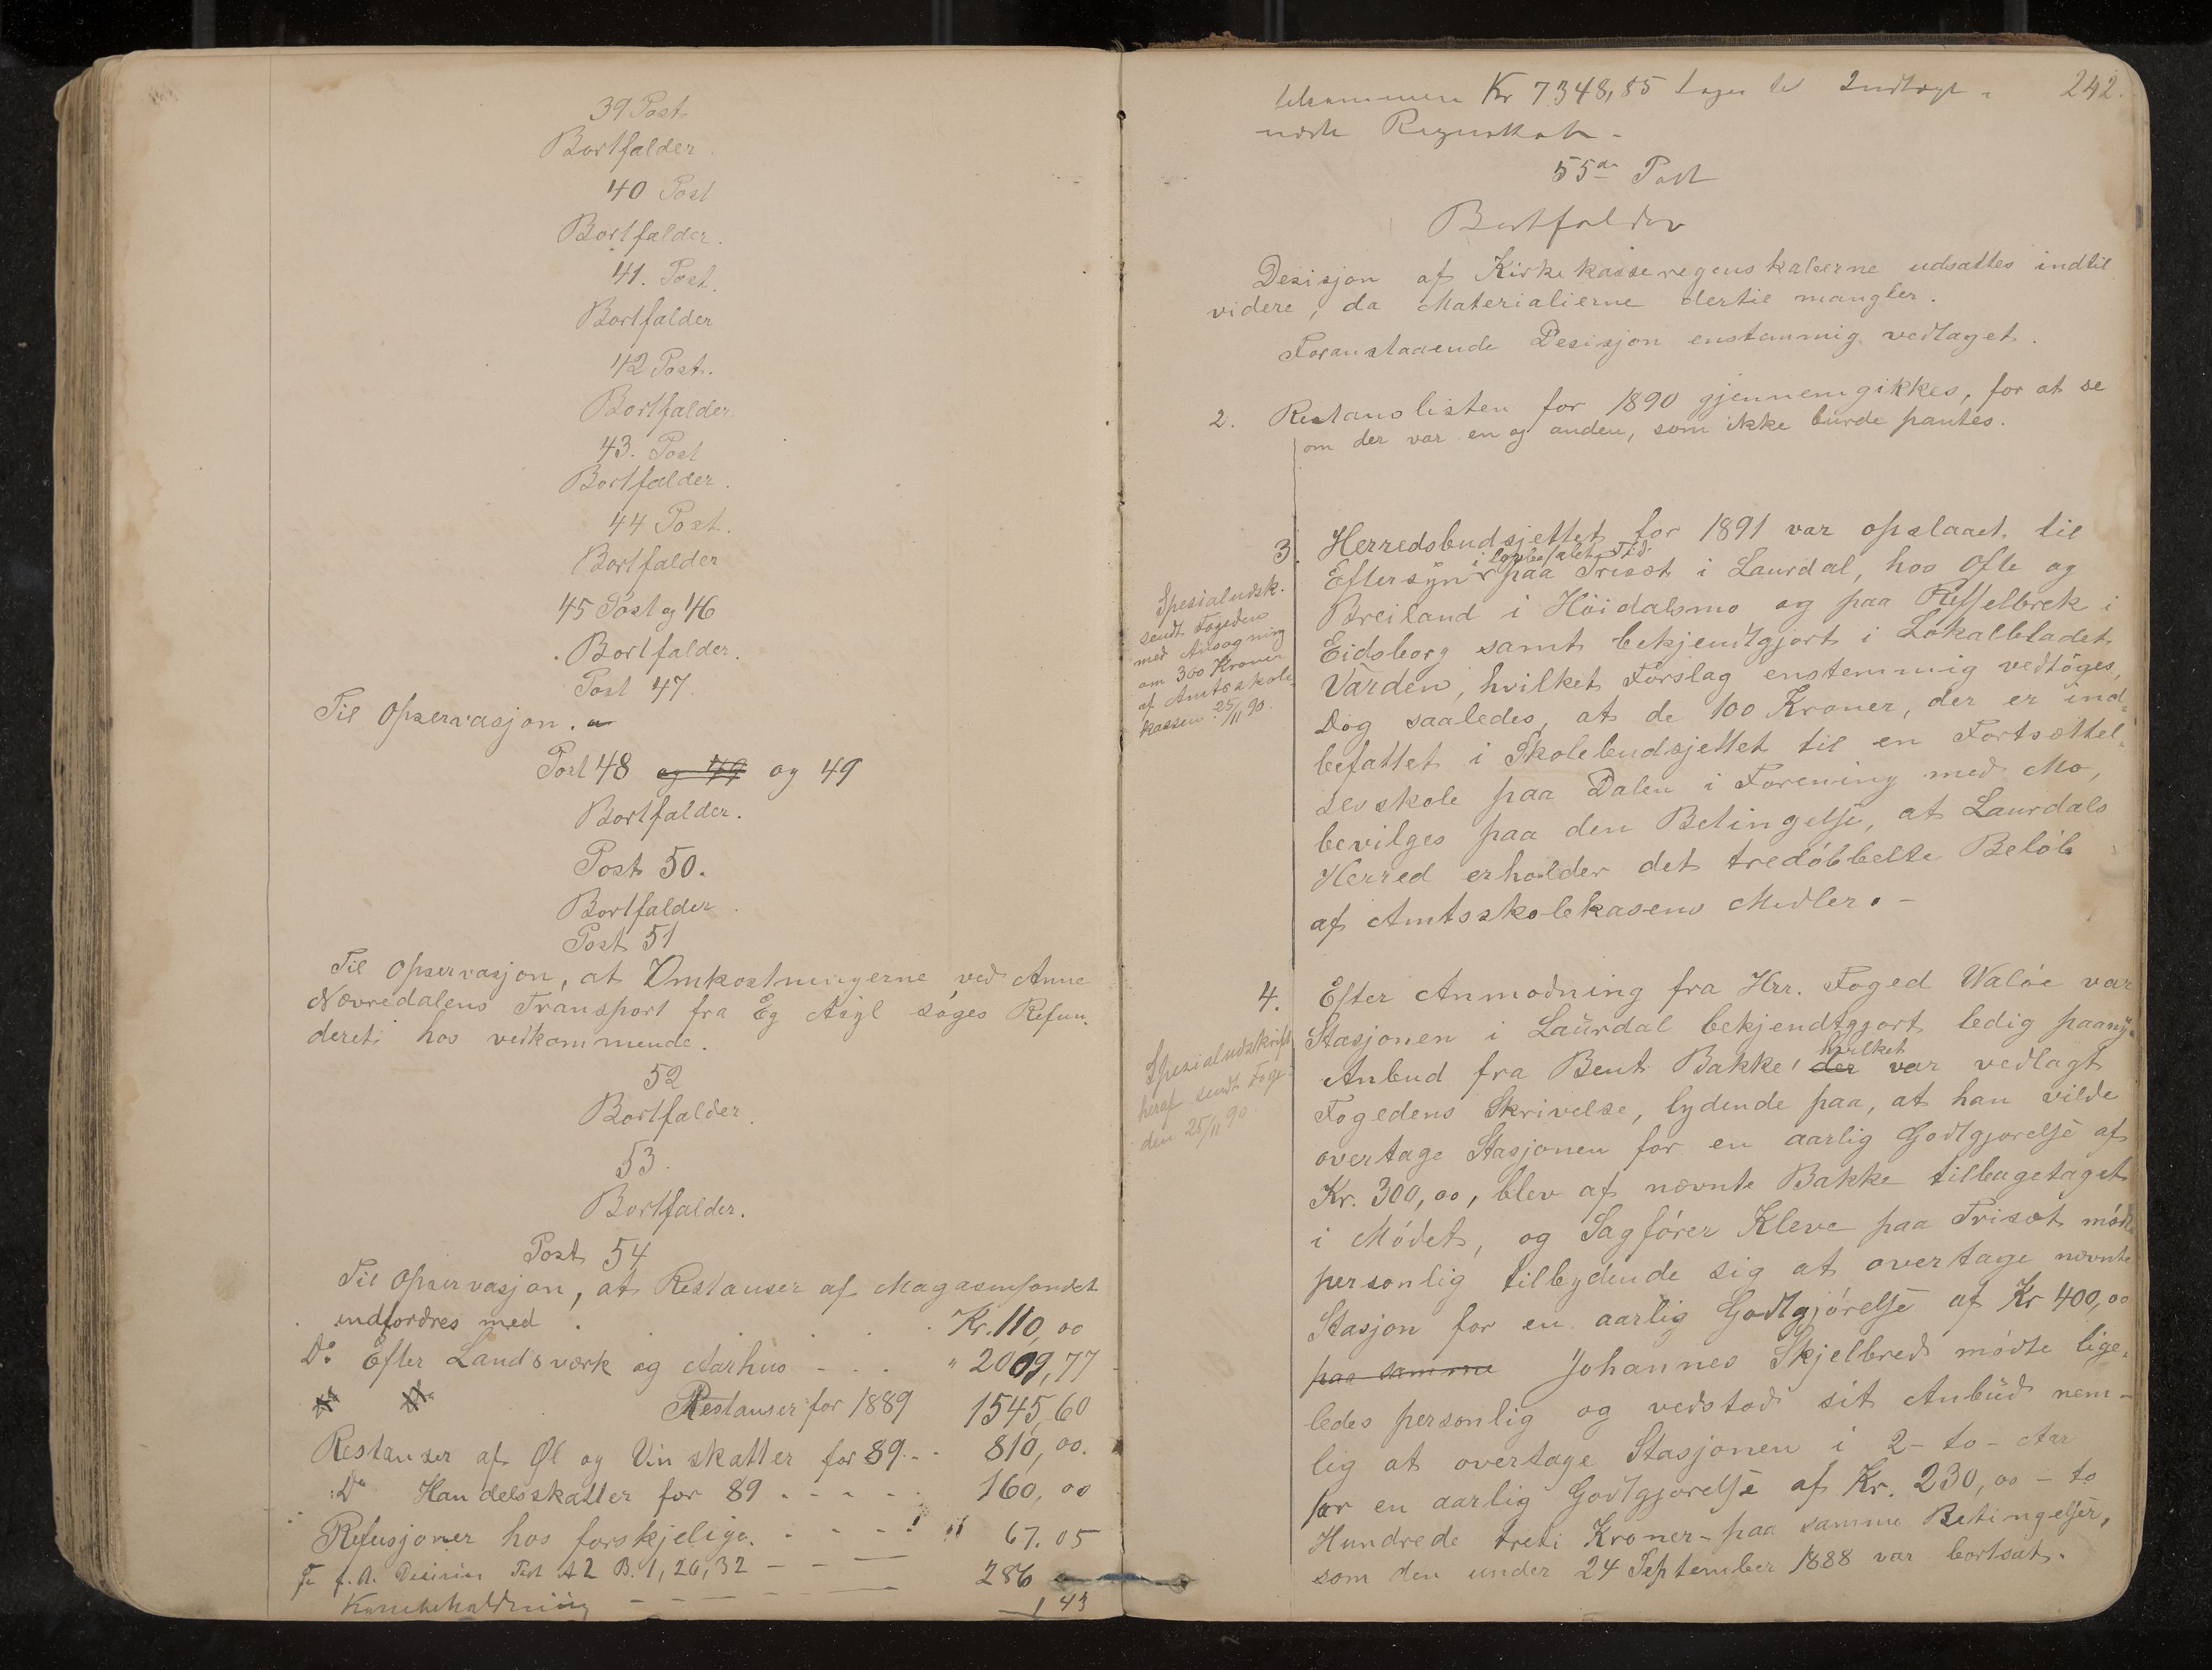 39 Post
Bortfalder.
40 Post
Bortfalder.
41. Post.
Bortfalder
42 Post.
Bortfalder
43. Post
Bortfalder.
44 Post.
Bortfalder
45 Post og 46
Bortfalder.
Post 47.
Til Opservasjon.
Post 48 og 49 og 49
Bortfalder.
Post 50.
Bortfalder.
Post 51
Til Opservasjon, at Omkostningerne ved Anne
Nævredalens Transport fra Eg Asyl søges Refun-
deret hos vedkommende.
52
Bortfalder.
53.
Bortfalder.
Post 54
Til Opservasjon, at Restanser af Magasinfondet
indfordres med . . . . . Kr. 110,00
Do Efter Landsværk og Aarhus - . . " 2009,77
Restanser for 1889 1545,60
Restanser af Øl og Vinskatter for 89 . . 810,00.
Do Handelsskatter for 89 . - - - . 160,00
Refusjoner hos forskjelige. . - - - " 67.05
f. A. Desision Post 42 B. 1, 26, 32 - - - 286
Kassebeholdning - - - -
242.
tilsammen Kr 7348,85 tages til Indtægt i
næste Regnskab -
55de Post
Bortfalder
Desisjon af Kirkekasseregenskaberne udsattes indtil
videre, da Materialierne dertil mangler.
Foranstaaende Desisjon enstemmig vedtaget.
2. Restanslisten for 1890 gjennemgikkes, for at se
om der var en og anden, som ikke burde pantes.
3. Herredsbudsjettet for 1891 var opslaaet til
i lovbefalet Tid
Eftersyn paa Trisæt i Laurdal, hos Ofte og
Breiland i Høidalsmo og paa i
Eidsborg samt bekjendtgjort i Lokalbladet
Varden, hvilket Forslag enstemmig vedtoges,
Dog saaledes, at de 100 Kroner, der er ind-
befattet i Skolebudsjettet til en Fortsættel-
sesskole paa Dalen i Forening med Mo,
bevilges paa den Betingelse, at Laurdals
Herred erholder det tredobbelte Beløb
af Amtsskolekasens Midler. -
Spesialudsk.
sendt Fogeden
med Ansøgning
om 300 Kroner
af Amtsskole-
kassen. 25/11 90.
4. Efter Anmodning fra Hrr. Foged Waløe var
Stasjonen i Laurdal bekjendtgjort ledig paany.
hvilket
Anbud fra Bent Bakke, der var vedlagt
Fogedens Skrivelse, lydende paa, at han vilde
overtage Stasjonen for en aarlig Godtgjørelse af
Kr. 300,00, blev af nævnte Bakke tilbagetaget
i Mødet, og Sagfører Kleve paa Trisæt mødte
personlig tilbydende sig at overtage nævnte
Stasjon for en aarlig Godtgjørelse af Kr 400,00
paa samme Johannes Skjelbred mødte lige-
ledes personlig og vedstod sit Anbud nem-
lig at overtage Stasjonen i 2 - to - Aar
for en aarlig Godtgjørelse af Kr. 230,00 - to
Hundrede treti Kroner - paa samme Betingelser,
som den under 24 September 1888 var bortsat.
Spesialudskrift
heraf sendt Foge-
den 25/11 90.